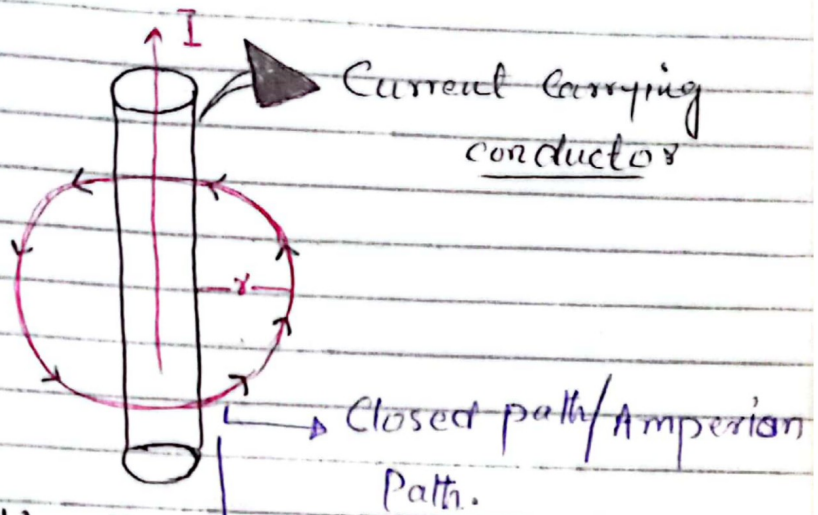 I
Current Carrying
conductor
r
Closed path/Amperian
Path.